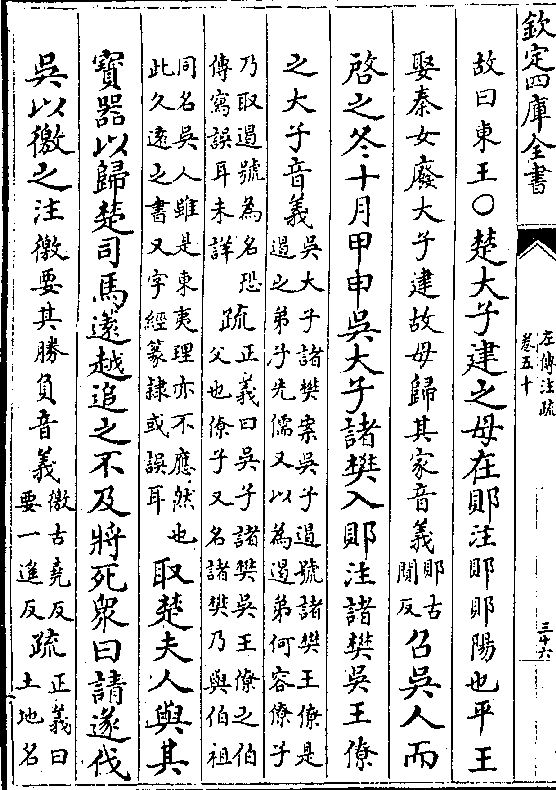 欽定四庫全書
左傳注疏
卷五十
三十六
故曰東王○楚大子建之母在郹注郹郹陽也平王
娶秦女廢大子建故母歸其家音義郹古
闃反召吳人而
啓之冬十月甲申吳大子諸樊入郹注諸樊吳王僚
之大子音義吳大子諸樊案吳子遏號諸樊王僚是
遏之弟子先儒又以為遏弟何容僚子
乃取遏號為名恐
傳寫誤耳未詳疏正義曰吳子諸樊吳王僚之伯
父也僚子又名諸樊乃與伯祖
同名吳人雖是東夷理亦不應然也
此久遠之書又字經篆隸或誤耳取楚夫人與其
寶器以歸楚司馬薳越追之不及將死衆曰請遂伐
吳以徼之注徼要其勝負音義徼古堯反
要一進反疏正義曰
土地名